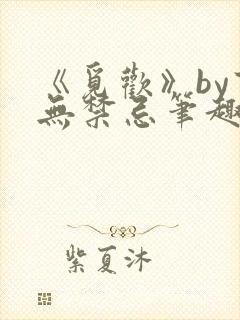 《覓歡》by
無禁忌筆趣
紫夏沐